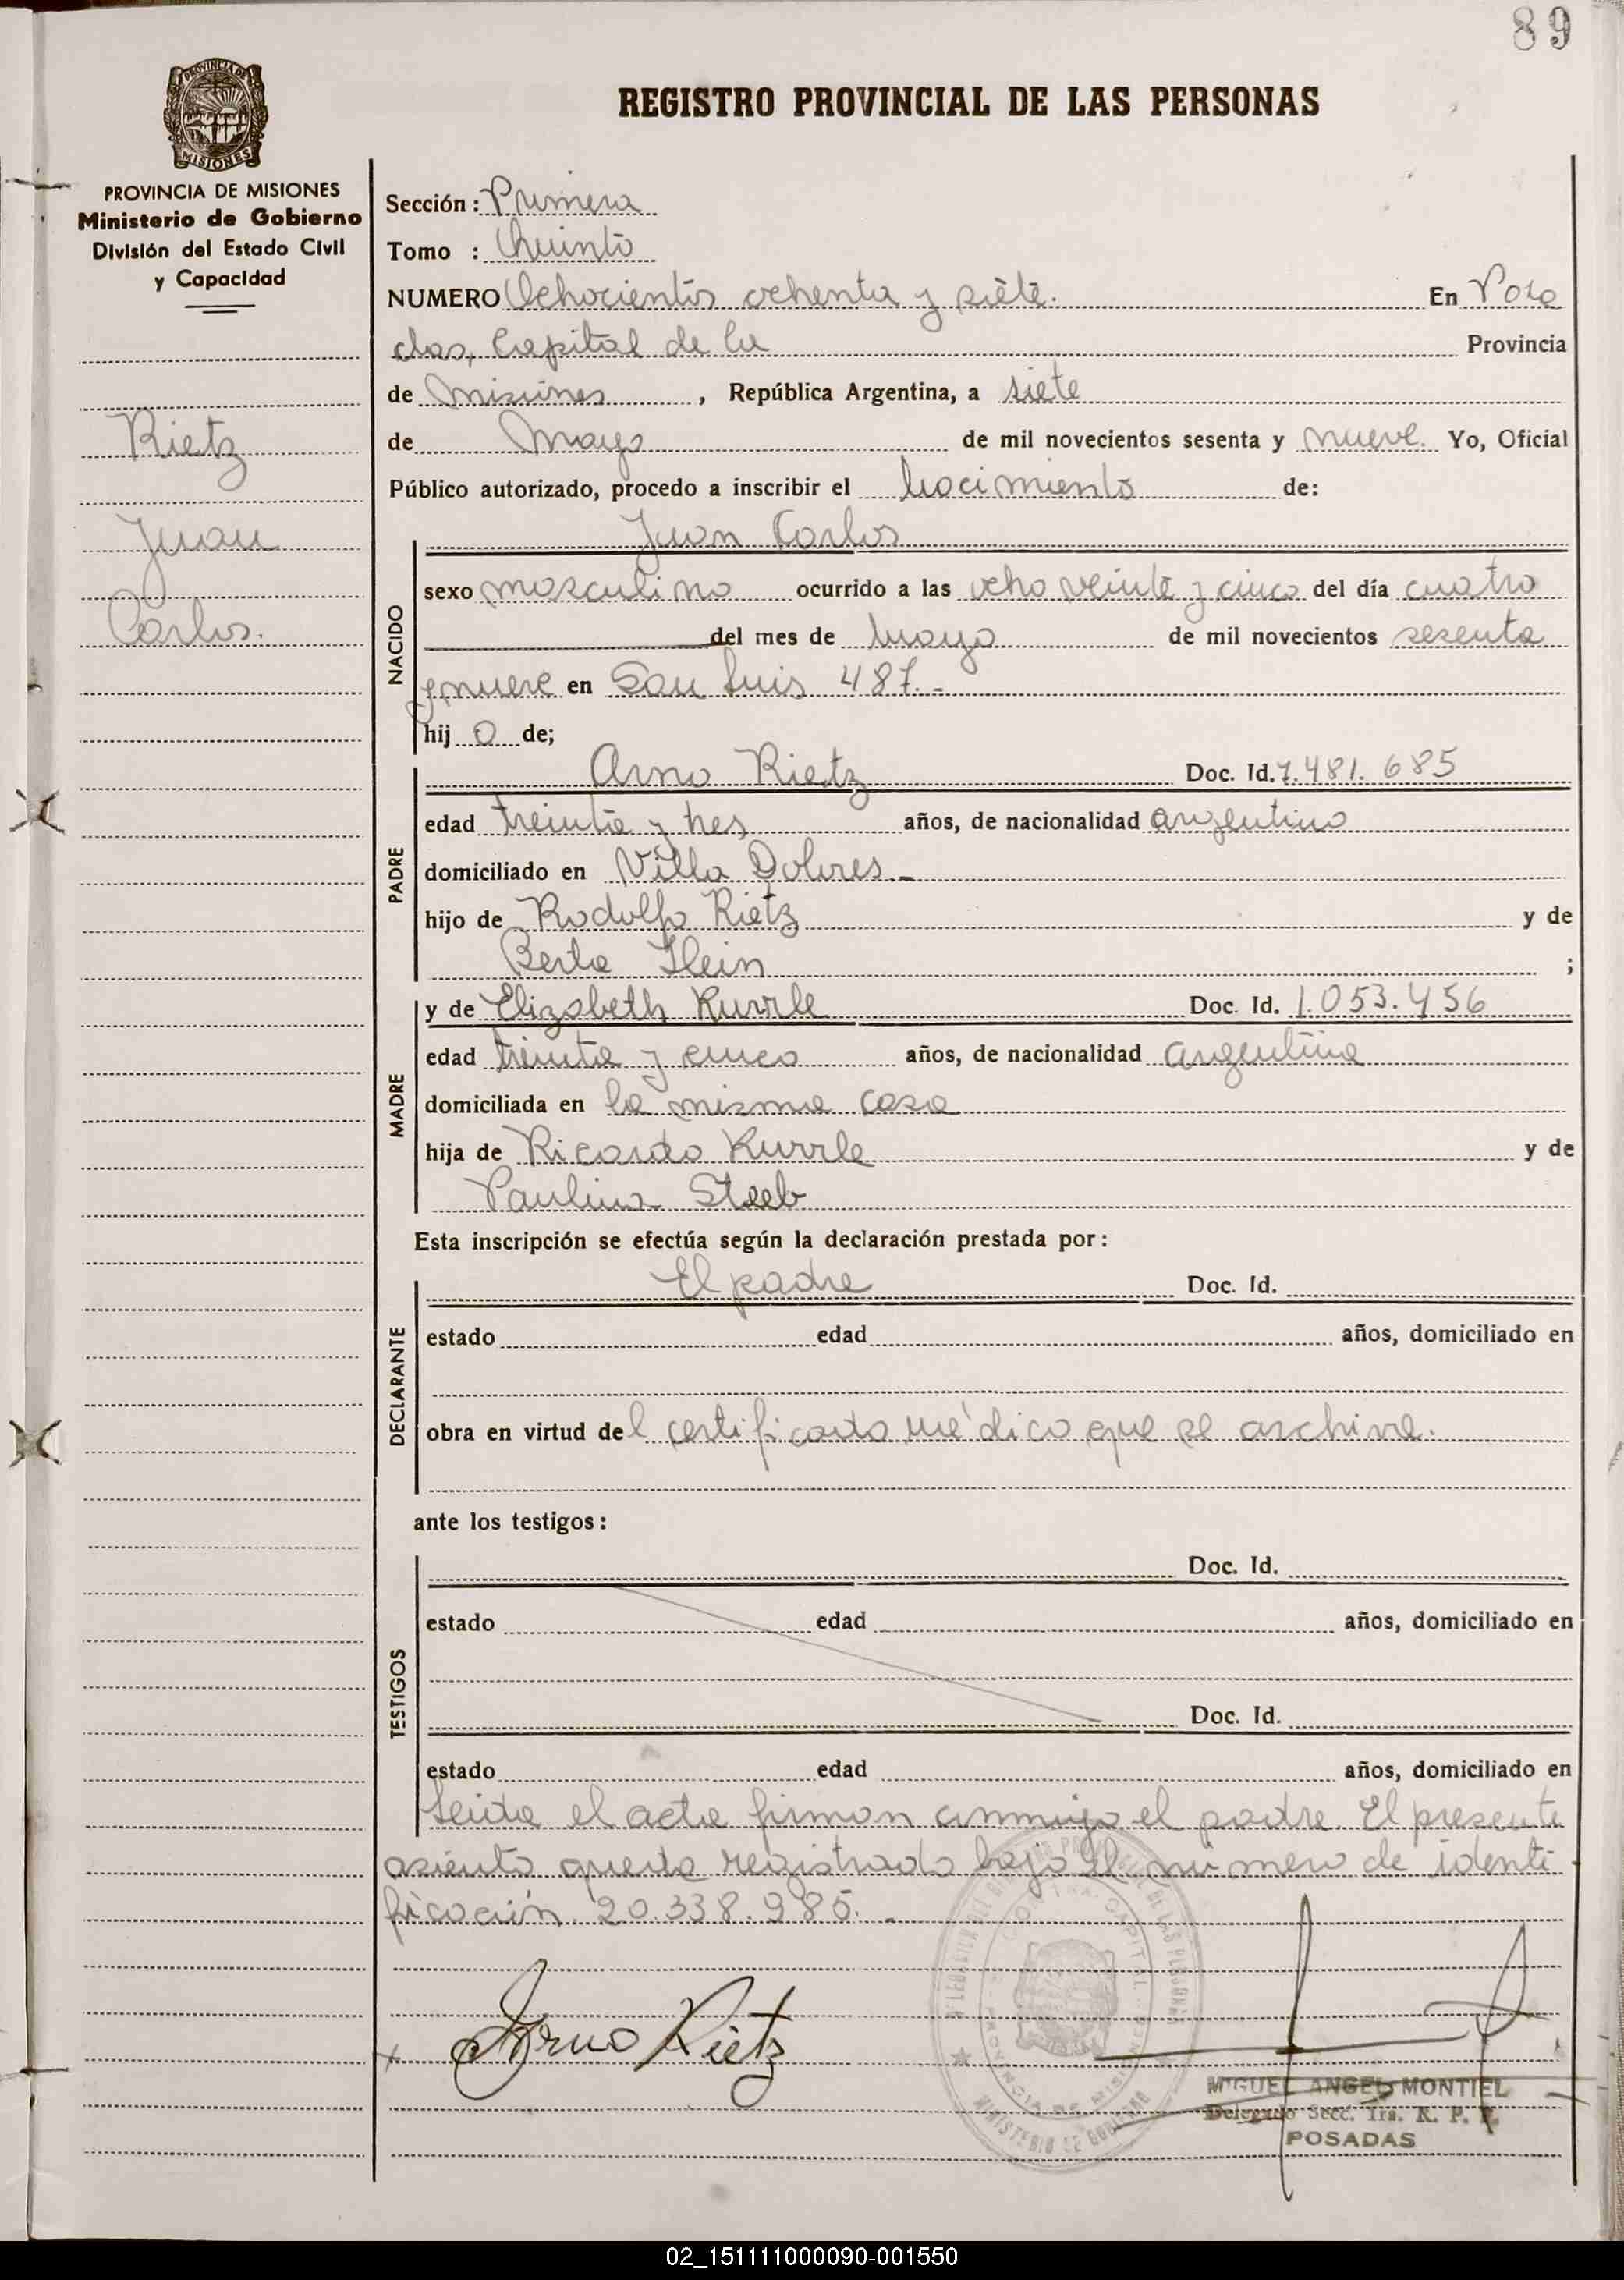 89
PROVINCIA DE MISIONES
REGISTRO PROVINCIAL DE LAS PERSONAS
PROVINCIA DE MISIONES
Ministerio de Gobierno
División del Estado Civil
y Capacidad
Rietz
Juan
Carlos.
Sección: Primera
Tomo : Quinto
NUMERO Ochocientos ochenta y siete. En Posa
das, Capital de la Provincia
de Misiones , República Argentina, a siete
de Mayo de mil novecientos sesenta y nueve. Yo, Oficial
Público autorizado, procedo a inscribir el nacimiento de:
NACIDO
Juan Carlos
sexo masculino ocurrido a las ocho veinte y cinco del día cuatro
del mes de mayo de mil novecientos sesenta
y nueve en San Luis 487.-
hij o de;
PADRE
Arno Rietz Doc. Id. 7.481.685
edad treinta y tres años, de nacionalidad argentino
domiciliado en Villa Dolores.-
hijo de Rodolfo Rietz y de
Berta ;
MADRE
y de Elizabeth Kurrle Doc. Id. 1.053.456
edad treinta y cinco años, de nacionalidad argentina
domiciliada en la misma casa
hija de Ricardo Kurrle y de
Paulina Steeb
Esta inscripción se efectúa según la declaración prestada por:
DECLARANTE
El padre Doc. Id.
estado edad años, domiciliado en
obra en virtud del certificado médico que se archiva.
ante los testigos:
TESTIGOS
Doc. Id.
estado edad años, domiciliado en
Doc. Id.
estado edad años, domiciliado en
Leida el acta firman conmigo el padre. El presente
asiento queda registrado bajo el número de identi
ficación 20.338.985.-
Arno Rietz
MIGUEL ANGEL MONTIEL
Delegado Secc. 1ra. R. P. P.
POSADAS
02_151111000090-001550